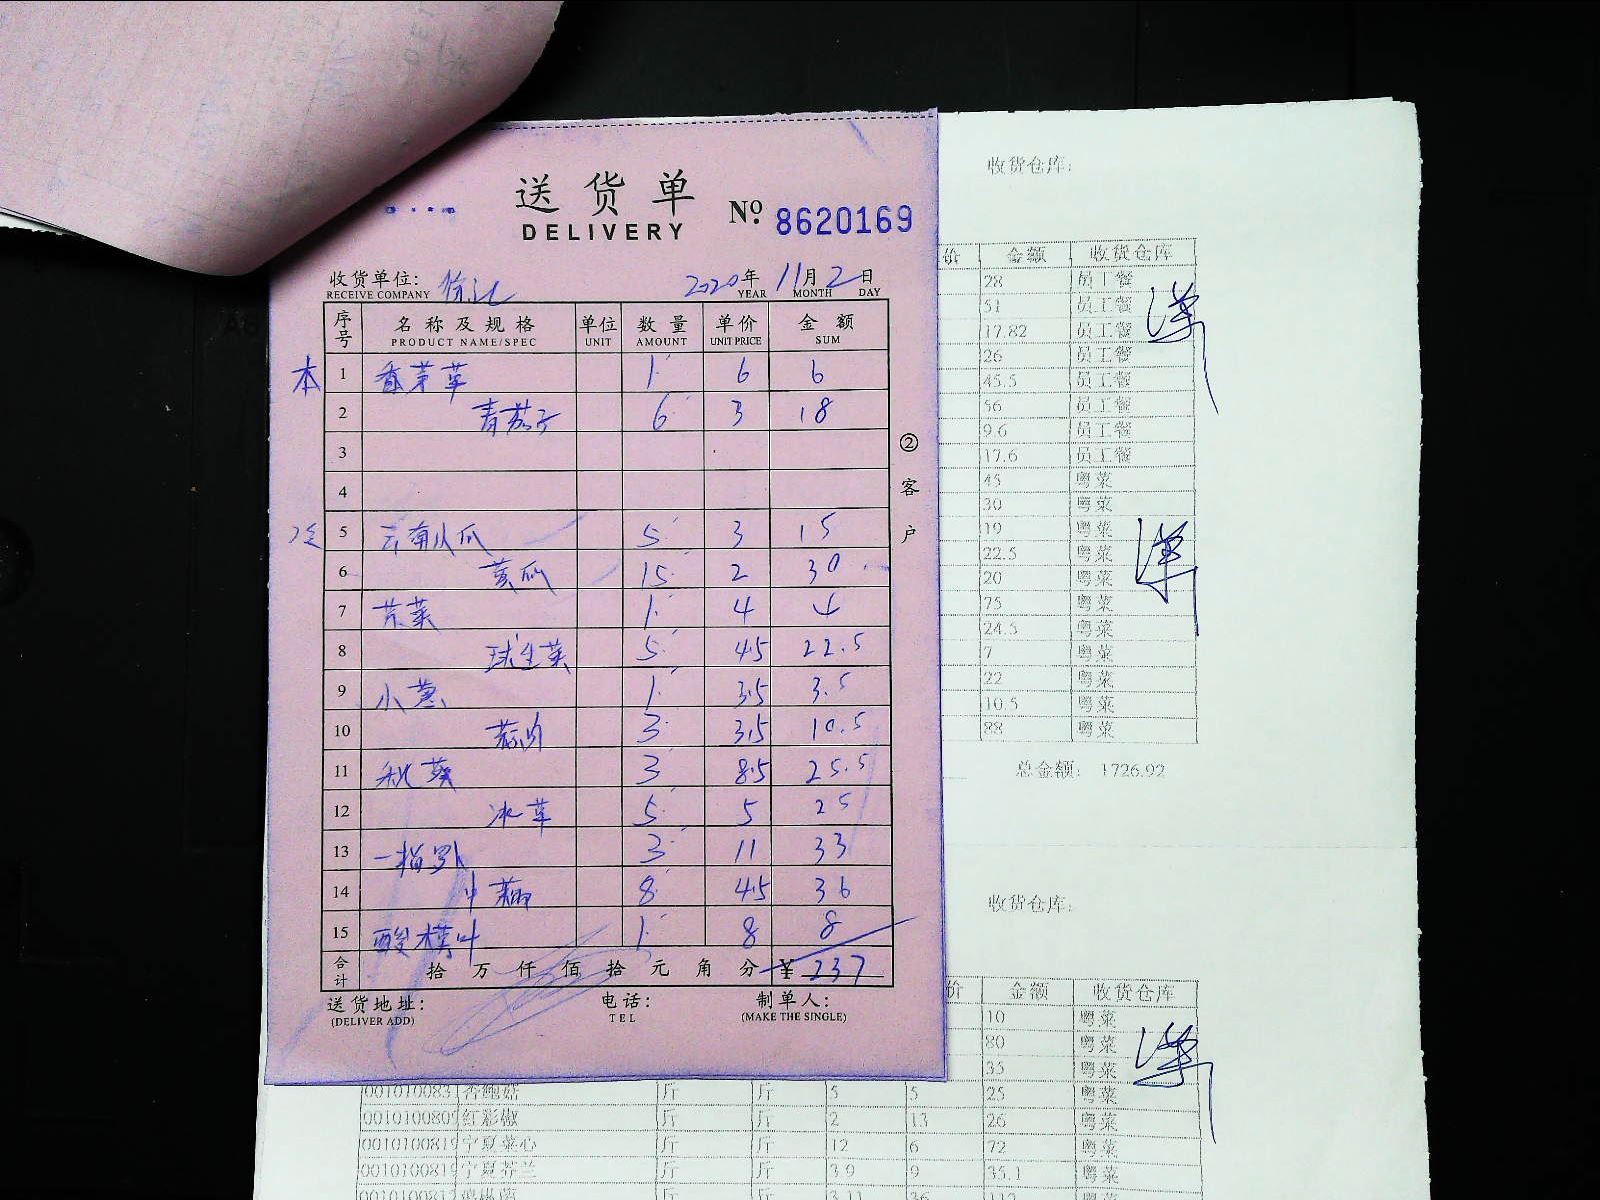 送货单
DELIVERY
No. 8620169
收货单位:
RECEIVE COMPANY
2020年 11月 2日
YEAR MONTH DAY
序号 名称及规格 单位 数量 单价 金额
PRODUCT NAME/SPEC UNIT AMOUNT UNIT PRICE SUM
本 1 香茅草 1 6 6
2 青茄子 6 3 18
3
4
5 云南小瓜 5 3 15
6 黄瓜 15 2 30
7 芹菜 1 4 4
8 球生菜 5 4.5 22.5
9 小葱 1 3.5 3.5
10 3 3.5 10.5
11 秋葵 3 8.5 25.5
12 冰草 5 5 25
13 3 11 33
14 8 4.5 36
15 1 8 8
合计 拾 万 仟 佰 拾 元 角 分 ¥ 237
送货地址: 电话: 制单人:
(DELIVER ADD) TEL (MAKE THE SINGLE)
②客户
收货仓库:
价 金额 收货仓库
28 员工餐
51 员工餐
17.82 员工餐
26 员工餐
45.5 员工餐
56 员工餐
9.6 员工餐
17.6 员工餐
45 粤菜
30 粤菜
19 粤菜
22.5 粤菜
20 粤菜
75 粤菜
24.5 粤菜
7 粤菜
22 粤菜
10.5 粤菜
88 粤菜
总金额: 1726.92
收货仓库:
价 金额 收货仓库
10 粤菜
80 粤菜
35 粤菜
001010083 杏鲍菇 斤 斤 5 5 25 粤菜
001010080 红彩椒 斤 斤 2 13 26 粤菜
001010081 宁夏菜心 斤 斤 12 6 72 粤菜
001010081 宁夏芥兰 斤 斤 3.9 9 35.1 粤菜